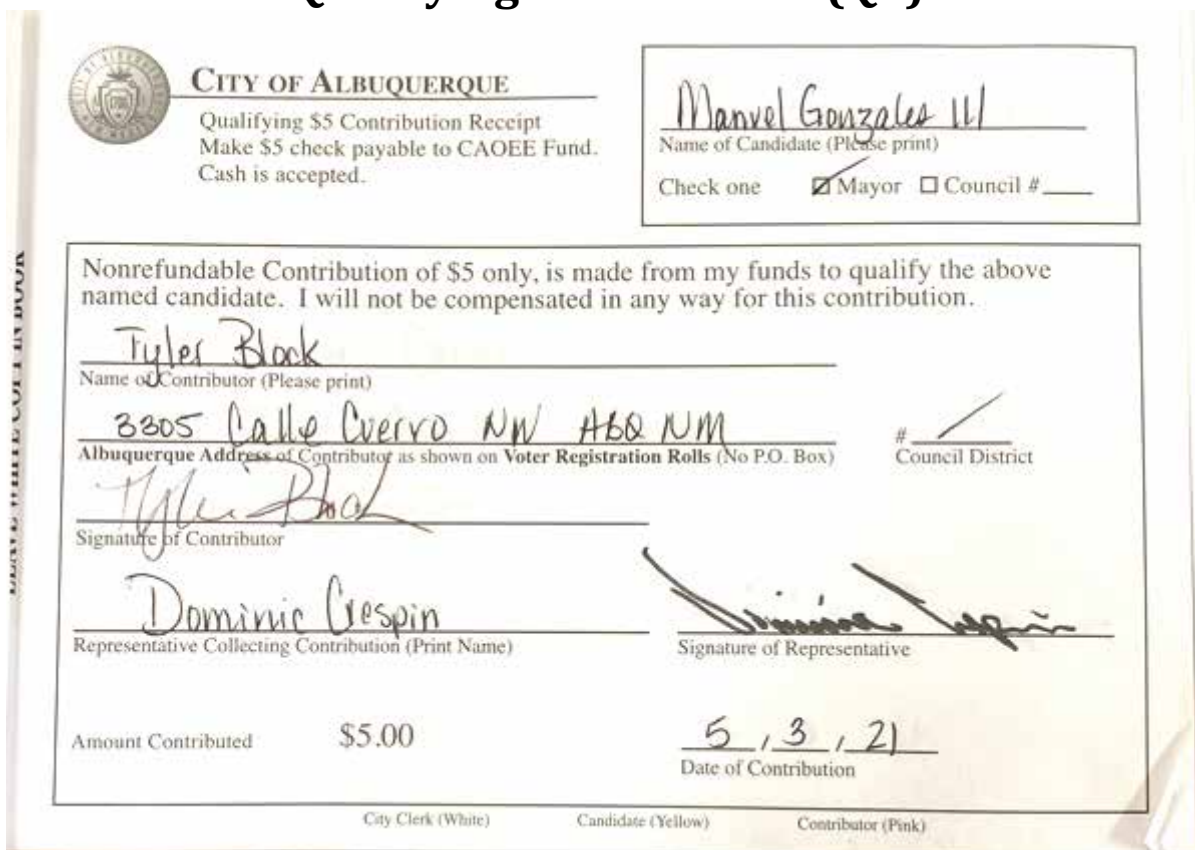 CITY OF ALBUQUERQUE
Qualifying $5 Contribution Receipt
Make $5 check payable to CAOEE Fund.
Cash is accepted.
Manuel Gonzales III
Name of Candidate (Please print)
Check one Mayor Council #
Nonrefundable Contribution of $5 only, is made from my funds to qualify the above
named candidate. I will not be compensated in any way for this contribution.
Tyler Block
Name of Contributor (Please print)
3305 Calle Cuervo NW ABQ NM
#
Albuquerque Address of Contributor as shown on Voter Registration Rolls (No P.O. Box)
Council District
Tyler Block
Signature of Contributor
Dominic Crespin
Representative Collecting Contribution (Print Name)
Signature of Representative
Amount Contributed $5.00
5, 3, 21
Date of Contribution
City Clerk (White) Candidate (Yellow) Contributor (Pink)